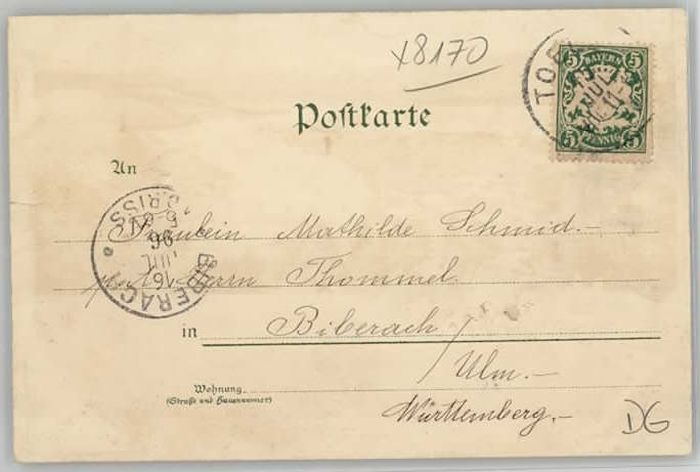 x8170
BAYERN
5 5
5 5
PFENNIG
TOE
JUL
11
Postkarte
An
Fräulein Mathilde Schmid.-
BIBERACH
16
JUL
96
5-6
RISS
Herrn Thommel.
in Biberach/
Ulm.-
Wohnung
(Straße und Hausnummer)
Württemberg.-
DG